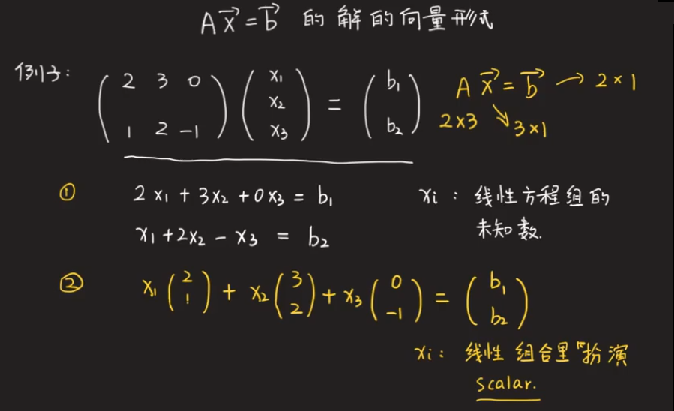 Ax⃗=b⃗ 的解的向量形式
例子: ( 2 3 0 ; 1 2 -1 ) ( x₁ ; x₂ ; x₃ ) = ( b₁ ; b₂ ) Ax⃗=b⃗ → 2×1
2×3 ↘ 3×1
① 2x₁ + 3x₂ + 0x₃ = b₁ xi : 线性方程组的
x₁ + 2x₂ - x₃ = b₂ 未知数.
② x₁ ( 2 ; 1 ) + x₂ ( 3 ; 2 ) + x₃ ( 0 ; -1 ) = ( b₁ ; b₂ )
xi: 线性组合里"扮演
scalar.